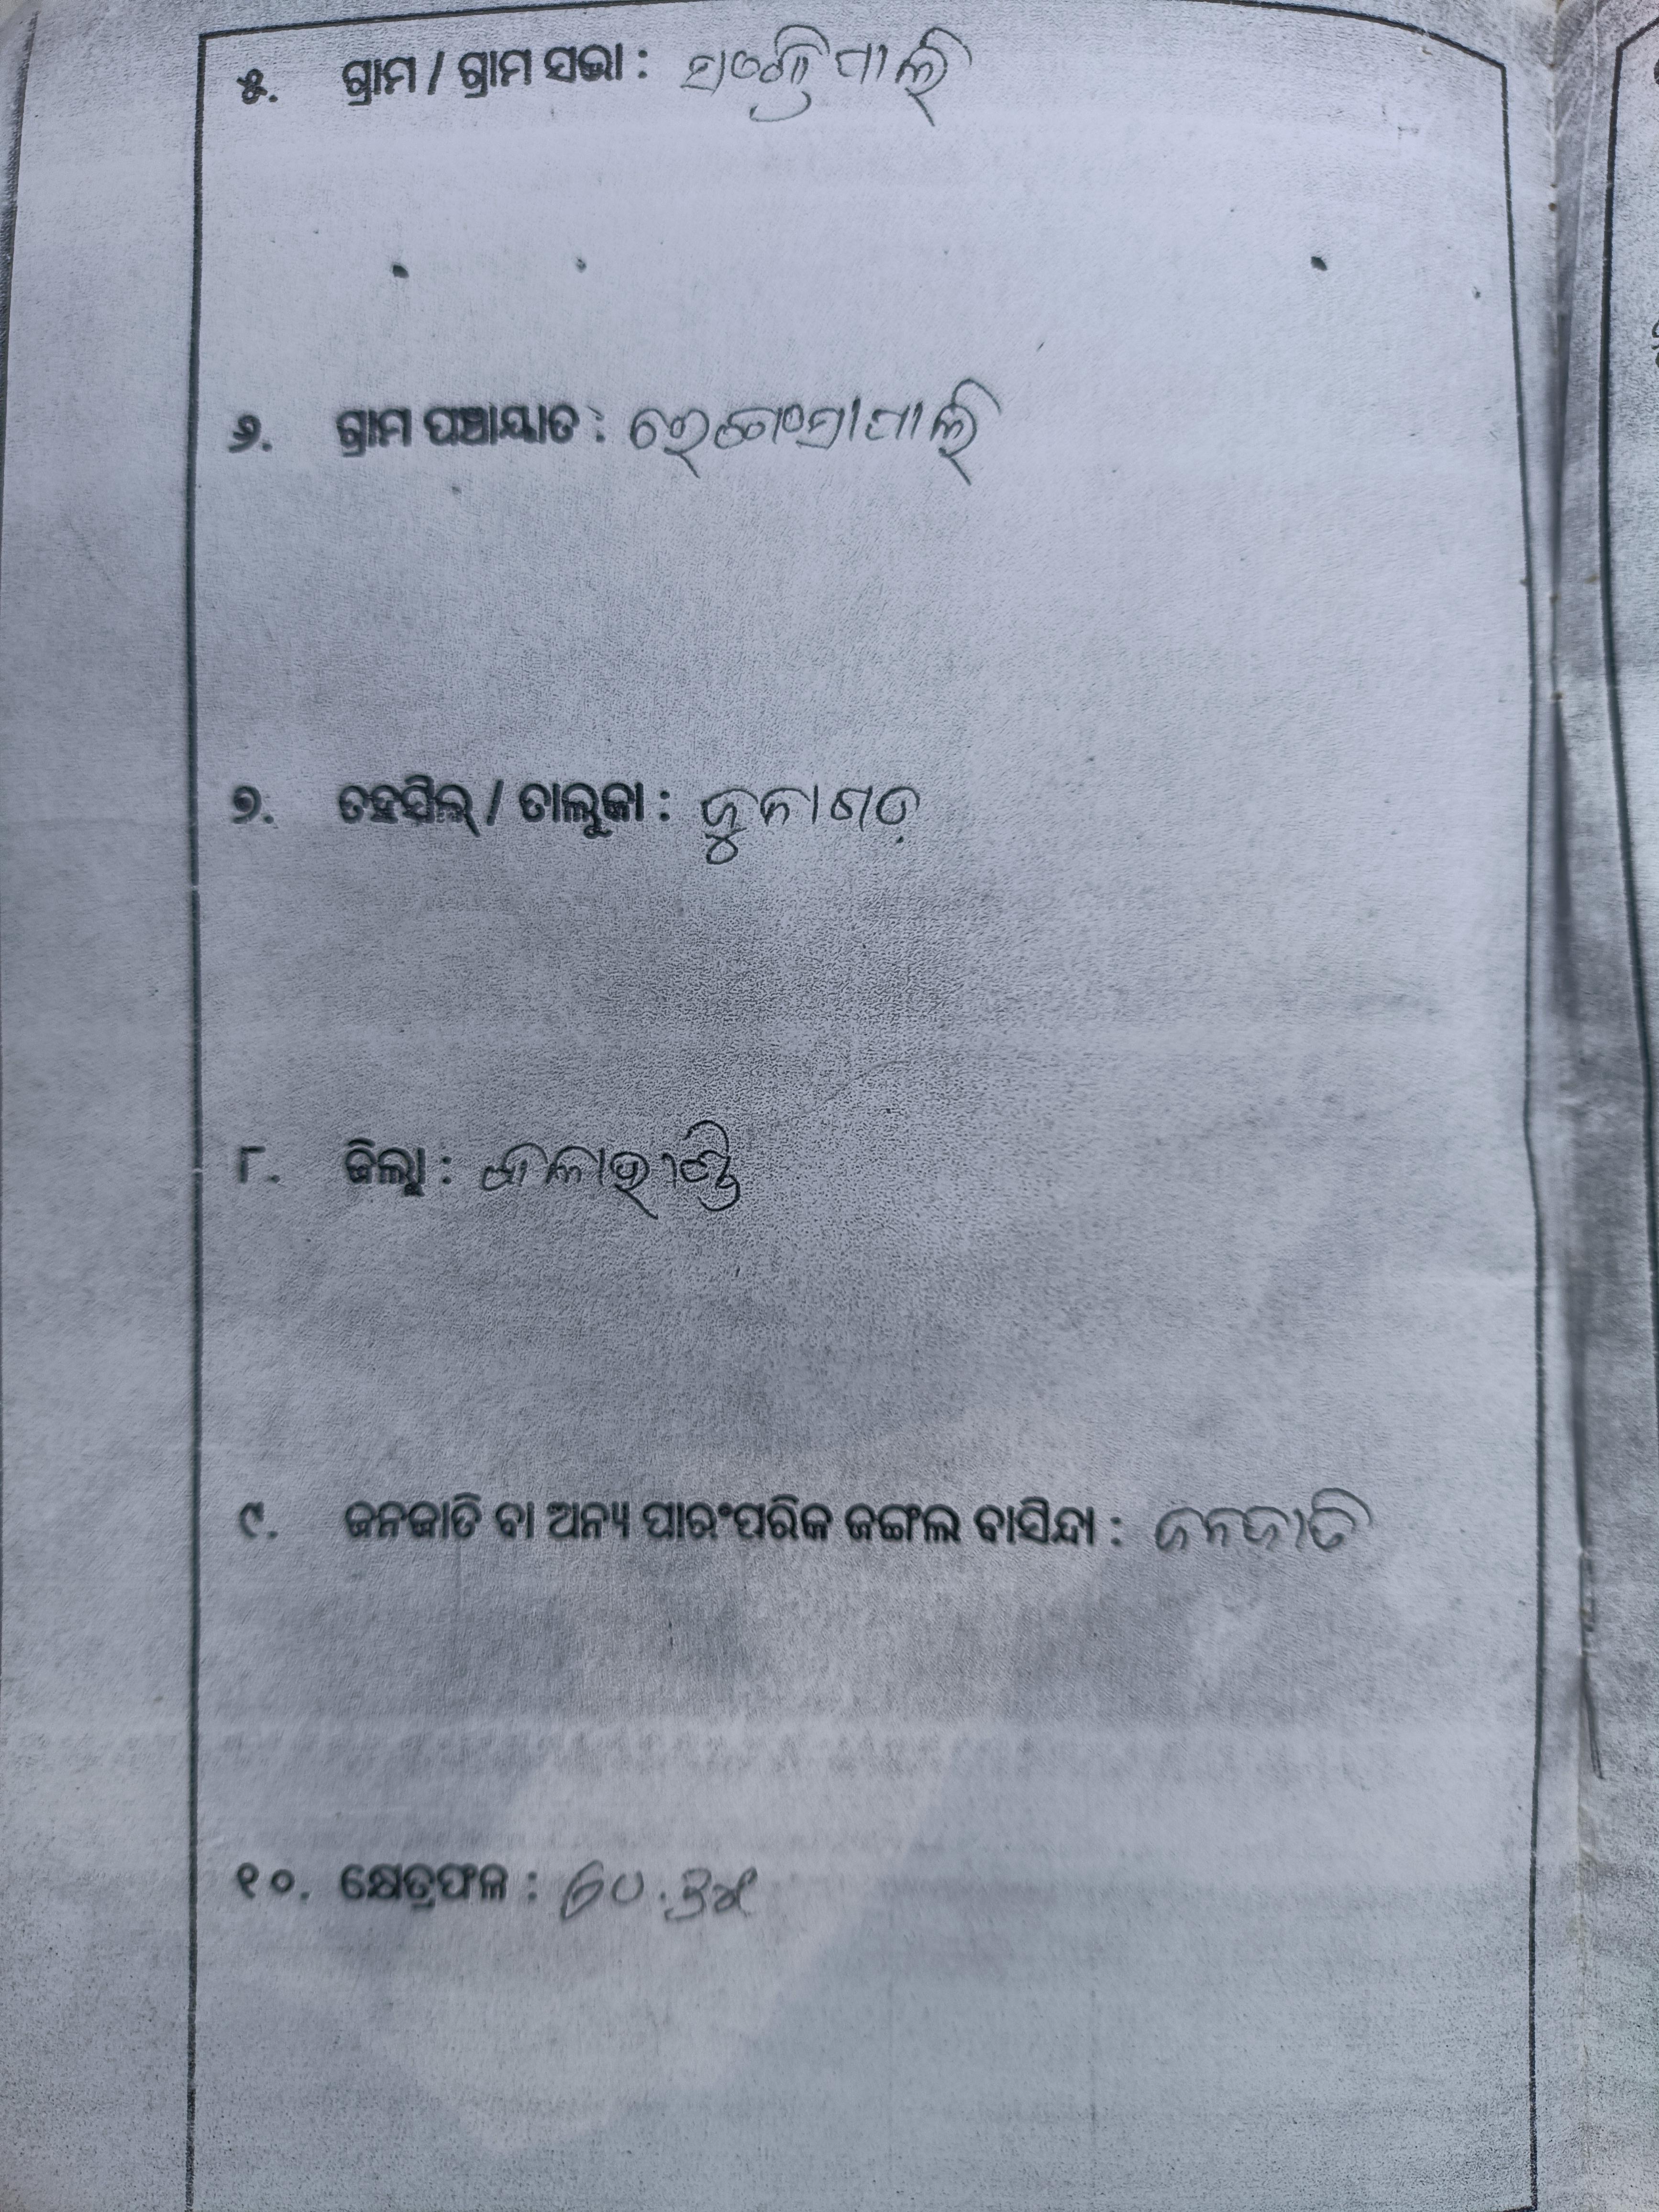 ୫. ଗ୍ରାମ / ଗ୍ରାମ ସଭା :
୬. ଗ୍ରାମ ପଞ୍ଚାୟାତ :
୭. ତହସିଲ୍ / ତାଲୁକା : ଜୁନାଗଡ଼
୮. ଜିଲ୍ଲା : କଳାହାଣ୍ଡି
୯. ଜନଜାତି ବା ଅନ୍ୟ ପାରଂପରିକ ଜଙ୍ଗଲ ବାସିନ୍ଦା : ଜନଜାତି
୧୦. କ୍ଷେତ୍ରଫଳ :